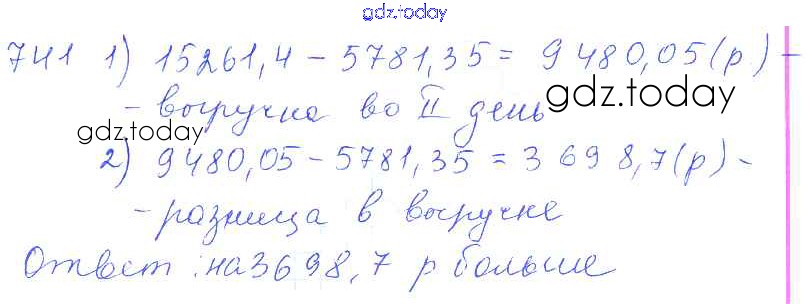 gdz.today
741 1) 15261,4 - 5781,35 = 9480,05 (р) -
- выручка во II день
gdz.today
gdz.today
2) 9480,05 - 5781,35 = 3 698,7 (р) -
- разница в выручке
Ответ: на 3698,7 р больше